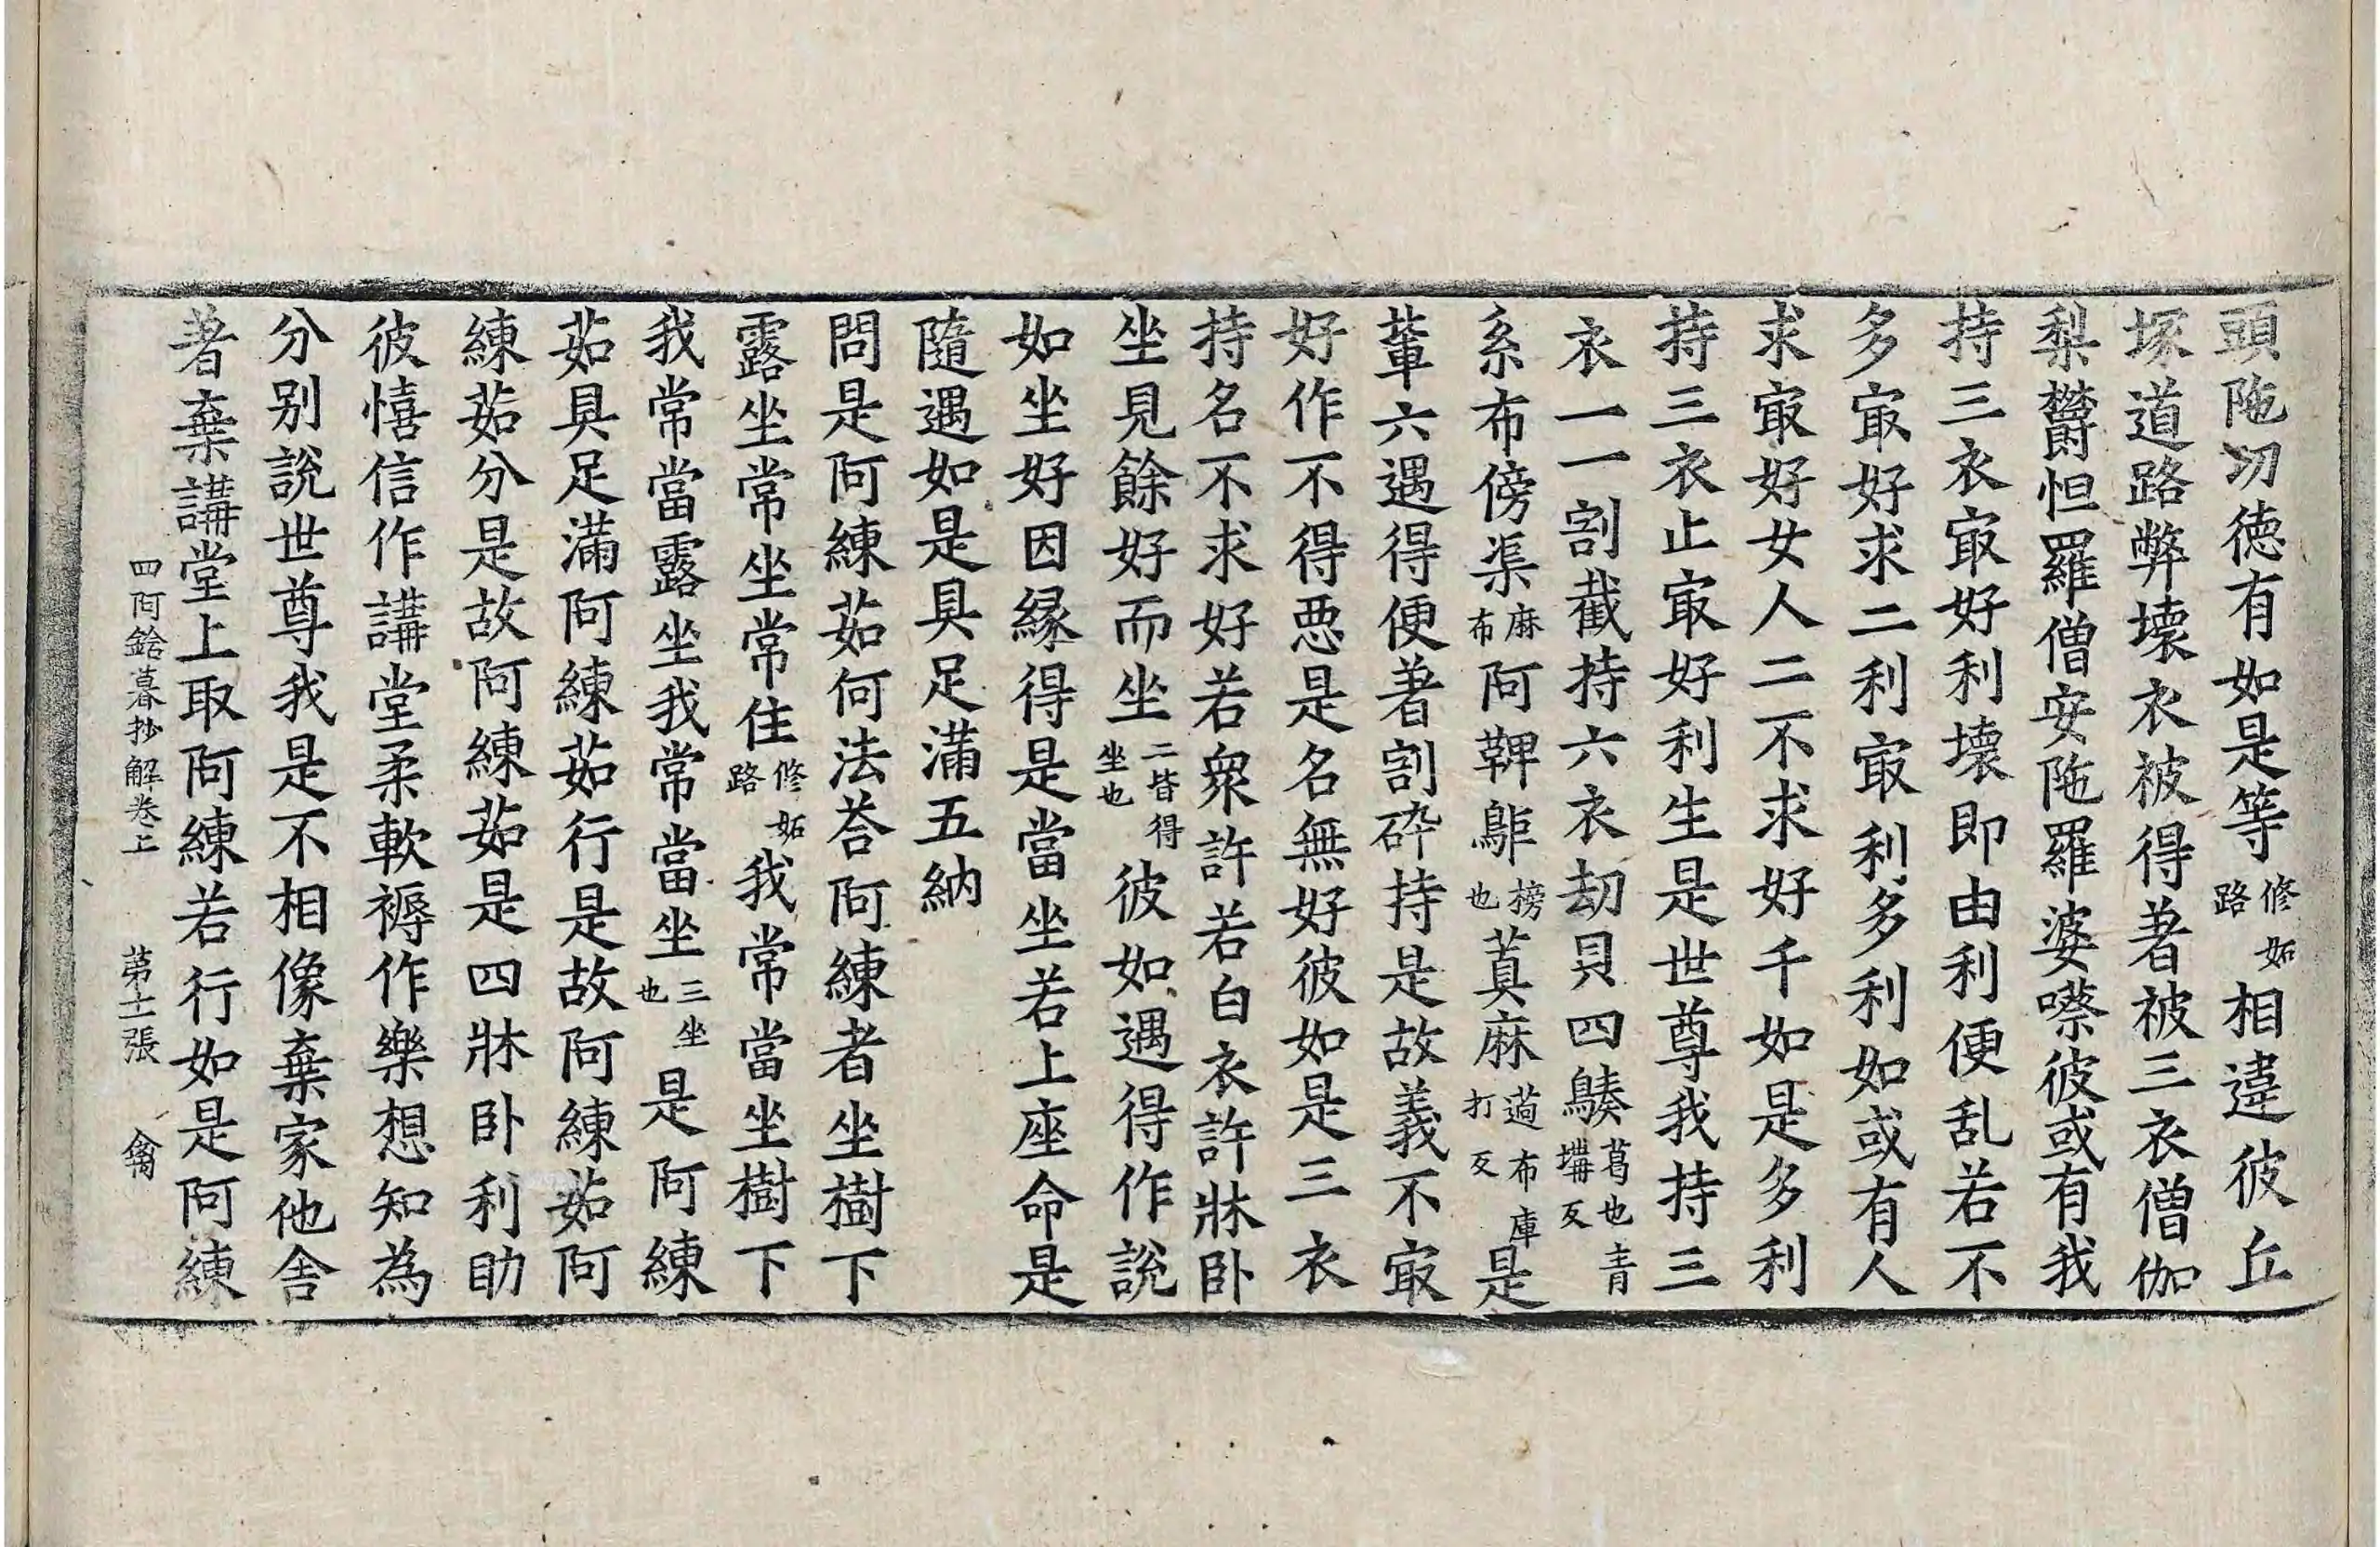 頭陁㓛德有如是等修妬路相違彼丘
塚道路弊壞衣被得著被三衣僧伽
梨欝怛羅僧安陁羅婆嗏彼或有我
持三衣㝡好利壞即由利便乱若不
多㝡好求二利㝡利多利如或有人
求㝡好女人二不求好千如是多利
持三衣止㝡好利生是世尊我持三
衣一一割截持六衣劫貝四葛也青㙛反
系布傍渠麻布阿鞞榜也蒖麻布庫打反是
軰六遇得便著割碎持是故義不㝡
好作不得悪是名無好彼如是三衣
持名不求好若衆許若白衣許牀卧
坐見餘好而坐二皆得坐也彼如遇得作說
如坐好因縁得是當坐若上座命是
隨遇如是具足滿五納
問是阿練茹何法荅阿練者坐樹下
露坐常坐常住修妬路我常當坐樹下
我常當露坐我常當坐三坐也是阿練
茹具足滿阿練茹行是故阿練茹阿
練茹分是故阿練茹是四牀卧利助
彼憘信作講堂柔軟褥作樂想知為
分别說世尊我是不相像棄家他舍
著棄講堂上取阿練若行如是阿練
四阿鋡暮抄解卷上　第十二張　禽